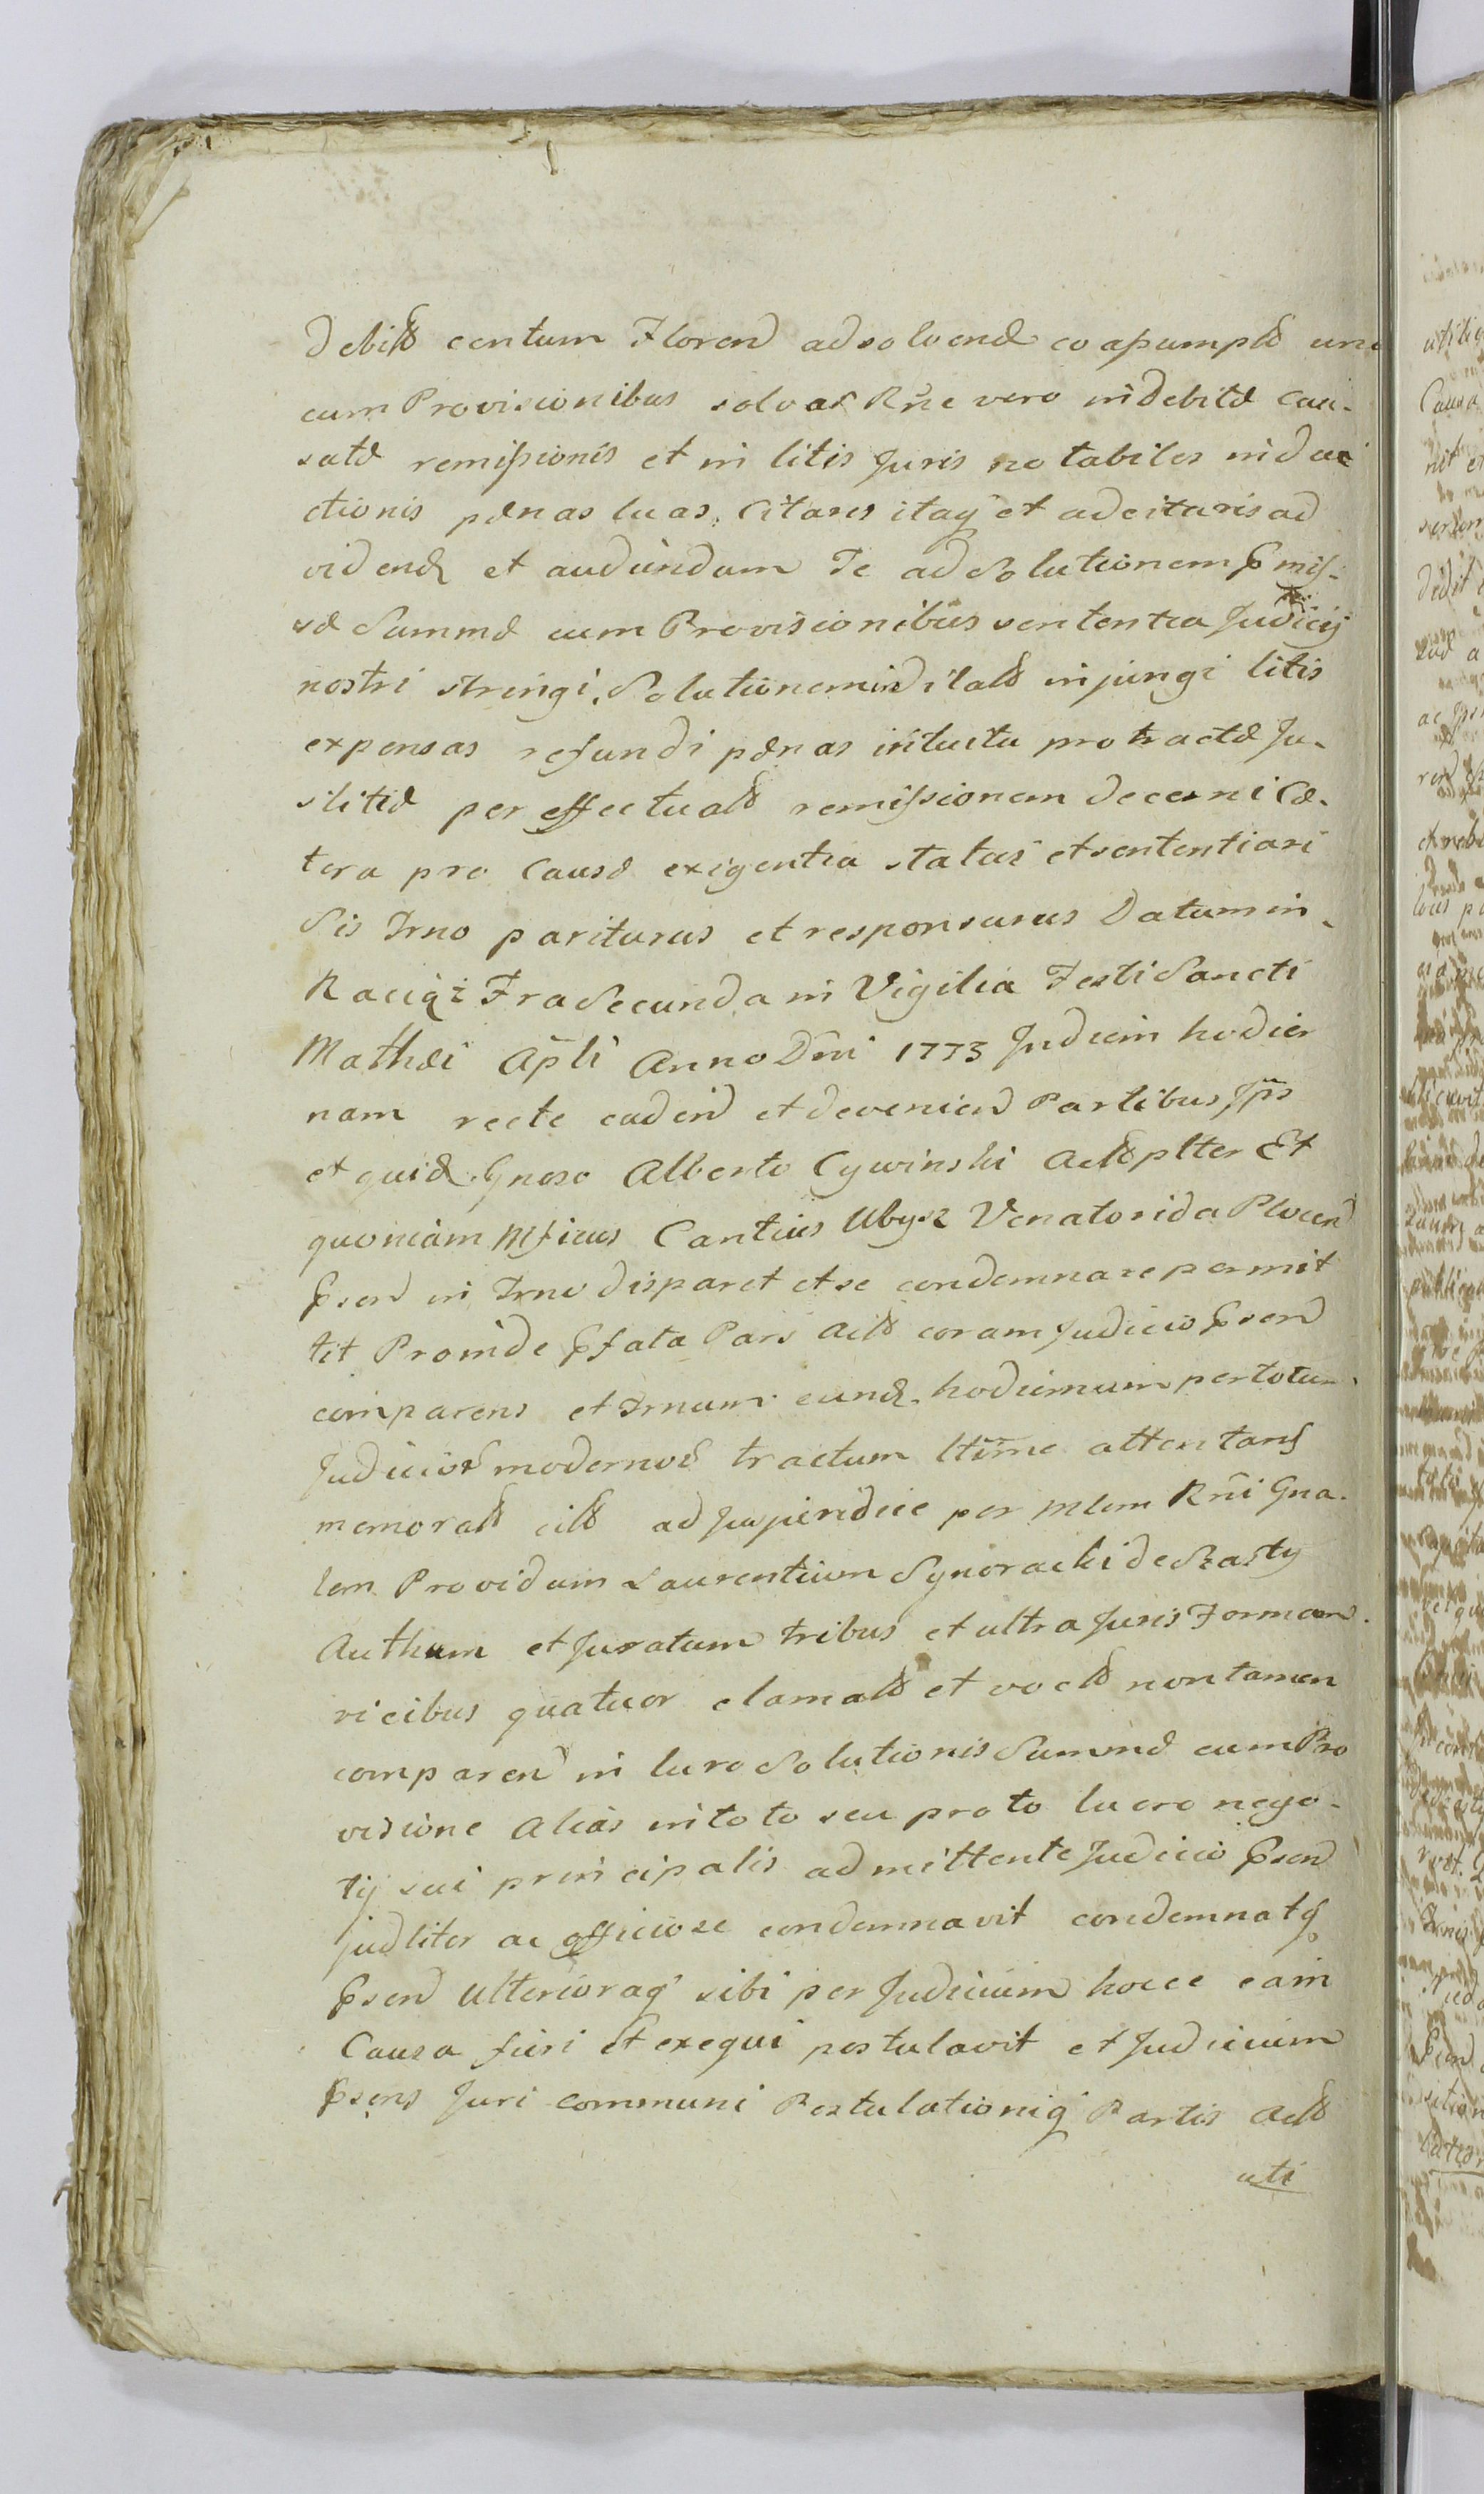 debitæ centum Floren adsolvend eo assumptæ una
cum Provisionibus solvas Rne vero indebitæ cau-
satæ remissionis et in litis Juris notabiles induc
ctionis pænas luas. Citaris itaq et adcitaris ad
vidend et audiendum Te ad Solutionem pmis-
sæ Summæ cum Provisionibus sententia Judicij
nostri stringi. Solutionem injungi litis
expensas refundi pænas intuitu protractæ Ju-
stitiæ per effectuatæ remissionem decerni Cæ-
tera pro Causæ exigentia statui et sententiari
Sis Trno pariturus et responsurus Datum in
Raciąż Fra Secunda in Vigilia Festi Sancti
Mathæi Apli Anno Dni 1773 Judicin hodier
nam recte caden et devenien Partibus Ips
et quid Gnoso Alberto Cywinski Act plter Et
quoniam Mficus Cantius Ubysz Venatorida Plocen
Psen in Trno disparet et se condemnare permit
tit Proinde Pfata Pars Act coram Judicio Psen
comparens et Trnum eund hodiernum per totum
Judicior modernor tractum ltime attentans
memorat cit ad Juspiridice per Mlem Rni Gna-
lem Providum Laurentium Synoracki de Szasty
Authum et Juratum tribus et ultra Juris Formam
vicibus quatuor clamat et voct non tamen
comparen in lucro Solutionis Summæ cum Pro
visione Alias in toto seu pro to lucro nego-
tij sui principalis admittente Judicio Psen
judliter ac officiose condemnavit condemnatq
Psen Ulterioraq sibi per Judicium hocce eam
Causa fieri et exequi postulavit et Judicium
Psens Juri communi Postulationiq Partis Act
uti